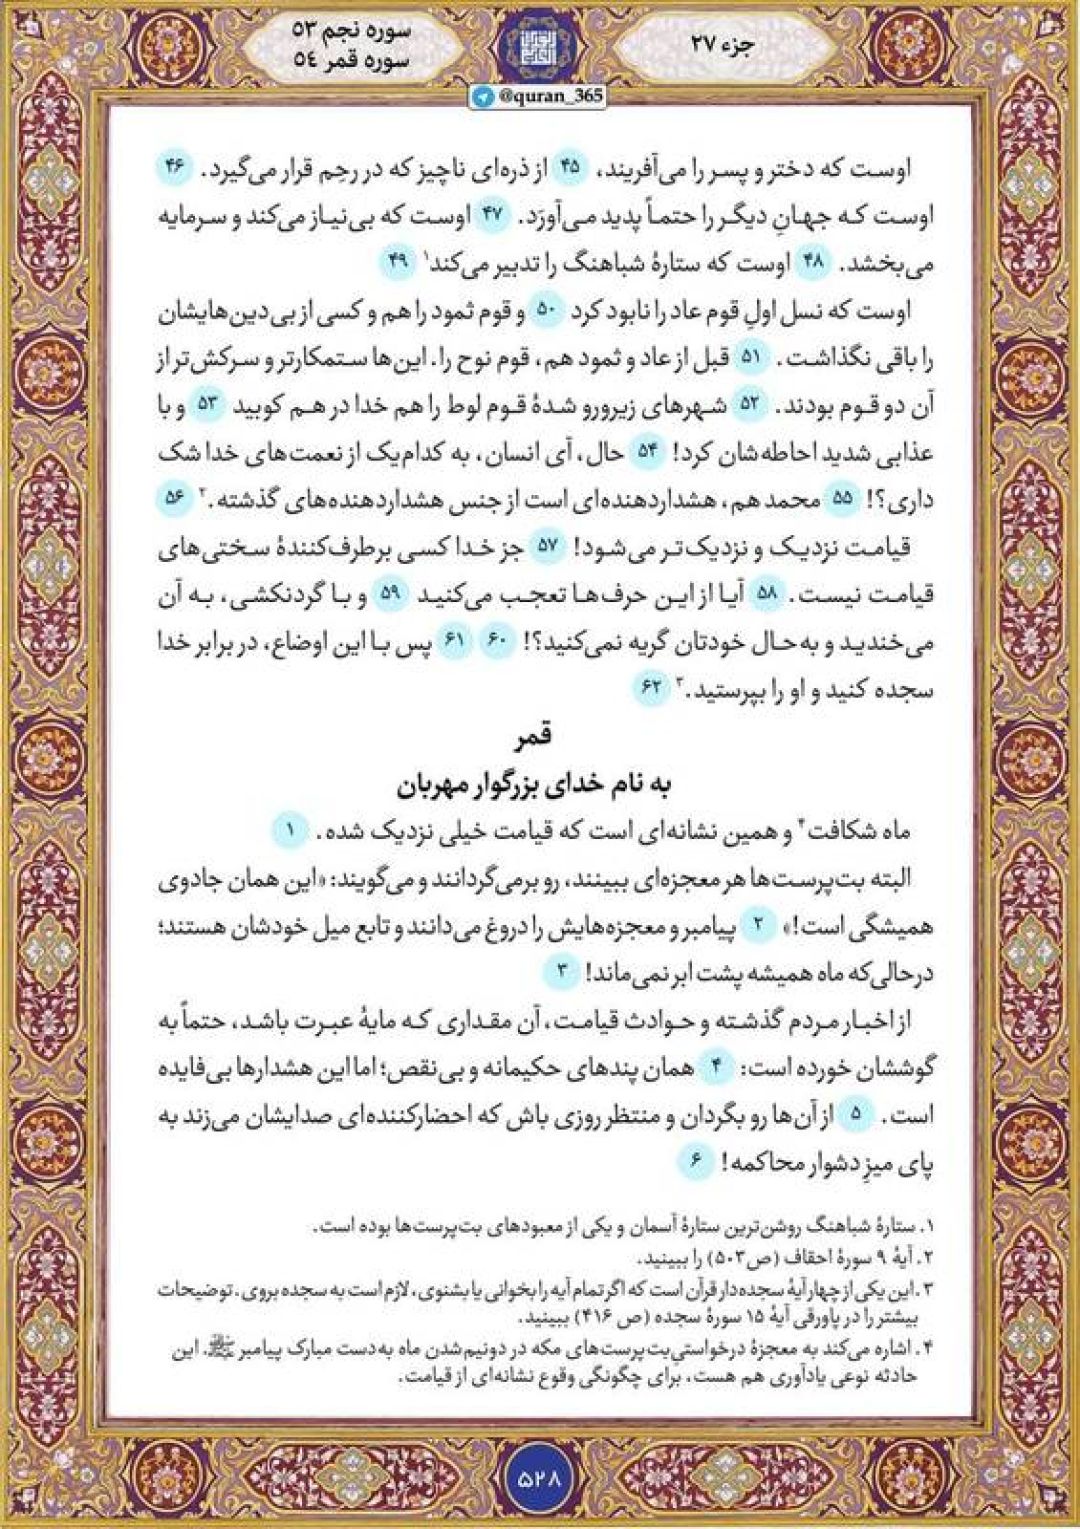 جزء ۲۷
سوره نجم ۵۳
سوره قمر ۵۴
@quran_365
اوست که دختر و پسر را می‌آفریند، ۴۵ از ذره‌ای ناچیز که در رحِم قرار می‌گیرد. ۴۶
اوست که جهانِ دیگر را حتماً پدید می‌آورَد. ۴۷ اوست که بی‌نیاز می‌کند و سرمایه
می‌بخشد. ۴۸ اوست که ستارهٔ شباهنگ را تدبیر می‌کند۱ ۴۹
اوست که نسل اولِ قوم عاد را نابود کرد ۵۰ و قوم ثمود را هم و کسی از بی‌دین‌هایشان
را باقی نگذاشت. ۵۱ قبل از عاد و ثمود هم، قوم نوح را. این‌ها ستمکارتر و سرکش‌تر از
آن دو قوم بودند. ۵۲ شهرهای زیرورو شدهٔ قوم لوط را هم خدا در هم کوبید ۵۳ و با
عذابی شدید احاطه‌شان کرد! ۵۴ حال، آی انسان، به کدام‌یک از نعمت‌های خدا شک
داری؟! ۵۵ محمد هم، هشداردهنده‌ای است از جنس هشداردهنده‌های گذشته.۲ ۵۶
قیامت نزدیک و نزدیک‌تر می‌شود! ۵۷ جز خدا کسی برطرف‌کنندهٔ سختی‌های
قیامت نیست. ۵۸ آیا از این حرف‌ها تعجب می‌کنید ۵۹ و با گردنکشی، به آن
می‌خندید و به‌حال خودتان گریه نمی‌کنید؟! ۶۰ ۶۱ پس با این اوضاع، در برابر خدا
سجده کنید و او را بپرستید.۳ ۶۲
قمر
به نام خدای بزرگوار مهربان
ماه شکافت۴ و همین نشانه‌ای است که قیامت خیلی نزدیک شده. ۱
البته بت‌پرست‌ها هر معجزه‌ای ببینند، رو برمی‌گردانند و می‌گویند: «این همان جادوی
همیشگی است!» ۲ پیامبر و معجزه‌هایش را دروغ می‌دانند و تابع میل خودشان هستند؛
درحالی‌که ماه همیشه پشت ابر نمی‌ماند! ۳
از اخبار مردم گذشته و حوادث قیامت، آن مقداری که مایهٔ عبرت باشد، حتماً به
گوششان خورده است: ۴ همان پندهای حکیمانه و بی‌نقص؛ اما این هشدارها بی‌فایده
است. ۵ از آن‌ها رو بگردان و منتظر روزی باش که احضارکننده‌ای صدایشان می‌زند به
پای میزِ دشوار محاکمه! ۶
۱. ستارهٔ شباهنگ روشن‌ترین ستارهٔ آسمان و یکی از معبودهای بت‌پرست‌ها بوده است.
۲. آیهٔ ۹ سورهٔ احقاف (ص۵۰۳) را ببینید.
۳. این یکی از چهار آیهٔ سجده‌دار قرآن است که اگر تمام آیه را بخوانی یا بشنوی، لازم است به سجده بروی. توضیحات
بیشتر را در پاورقی آیهٔ ۱۵ سورهٔ سجده (ص ۴۱۶) ببینید.
۴. اشاره می‌کند به معجزهٔ درخواستیِ بت‌پرست‌های مکه در دونیم‌شدن ماه به‌دست مبارک پیامبر ﷺ. این
حادثه نوعی یادآوری هم هست، برای چگونگی وقوع نشانه‌ای از قیامت.
۵۲۸